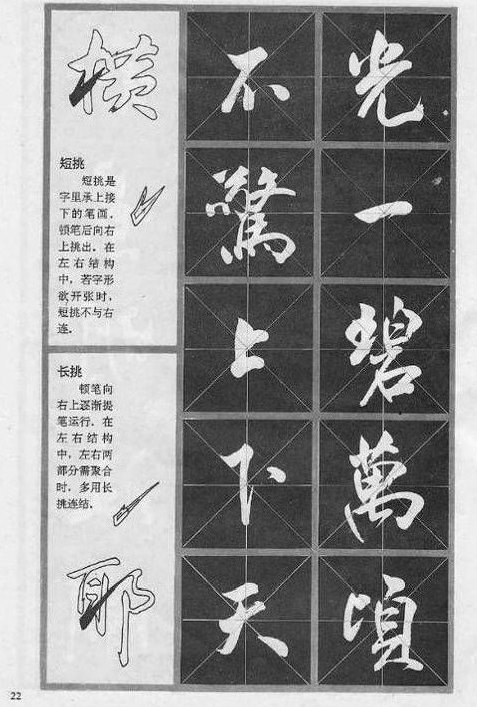 横
短挑
短挑是
字里承上接
下的笔画。
顿笔后向右
上挑出。在
左右结构
中，若字形
欲开张时，
短挑不与右
连。
长挑
顿笔向
右上逐渐提
笔运行。在
左右结构
中，左右两
部分需聚合
时，多用长
挑连结。
耶
不驚上下天
光一碧萬頃
22